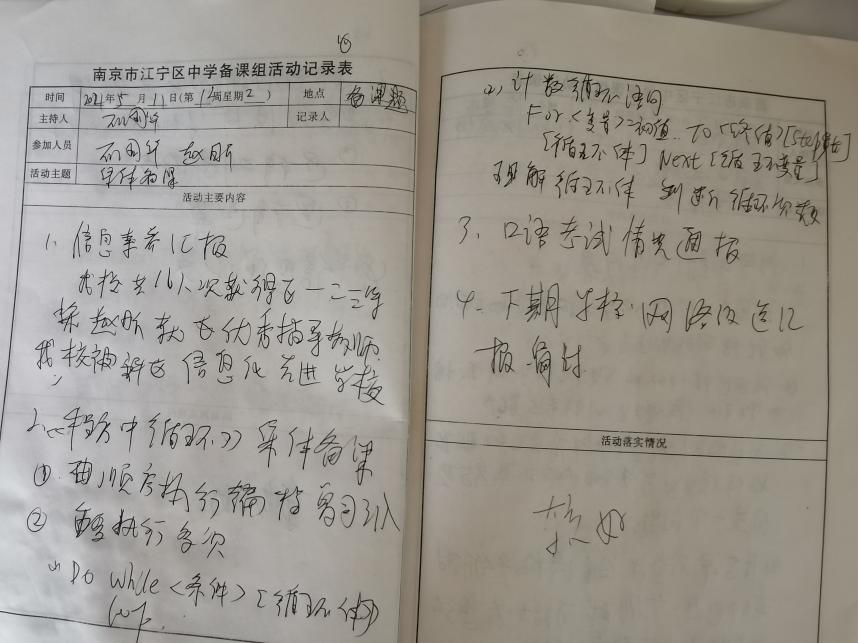 南京市江宁区中学备课组活动记录表
时间 2021年5月11日(第12周星期2) 地点 备课题
主持人 记录人
参加人员
活动主题 集体备课
活动主要内容
1、信息素养汇报
我校共16人次获得区一二三等
奖 赵昕获区优秀指导教师
我校被评区信息化先进学校
2、《程序中循环》集体备课
① 由顺序执行 复习引入
② 执行多次
(1) Do While <条件> [循环体]
Loop
2、计数循环语句
For <变量>=初值 To <终值> [Step步长]
[循环体] Next [循环变量]
理解循环体 判断循环次数
3、口语考试情况通报
4、下期学校网络改造汇
报商讨
活动落实情况
较好